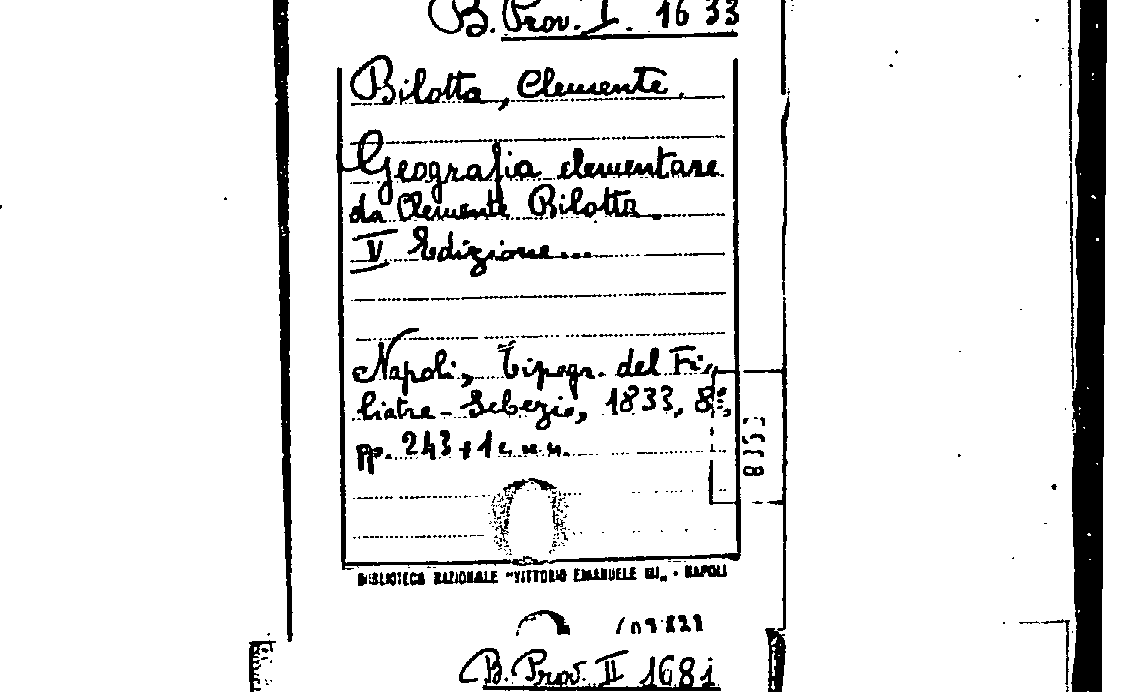 B. Prov. I. 1633
Bilotta, Clemente.
Geografia elementare
da Clemente Bilotta.
V Edizione...
Napoli, Tipogr. del Fi-
liatre-Sebezio, 1833, 8°,
pp. 243+1 c.n.n.
BIBLIOTECA NAZIONALE "VITTORIO EMANUELE III" - NAPOLI
B. Prov. II 1681